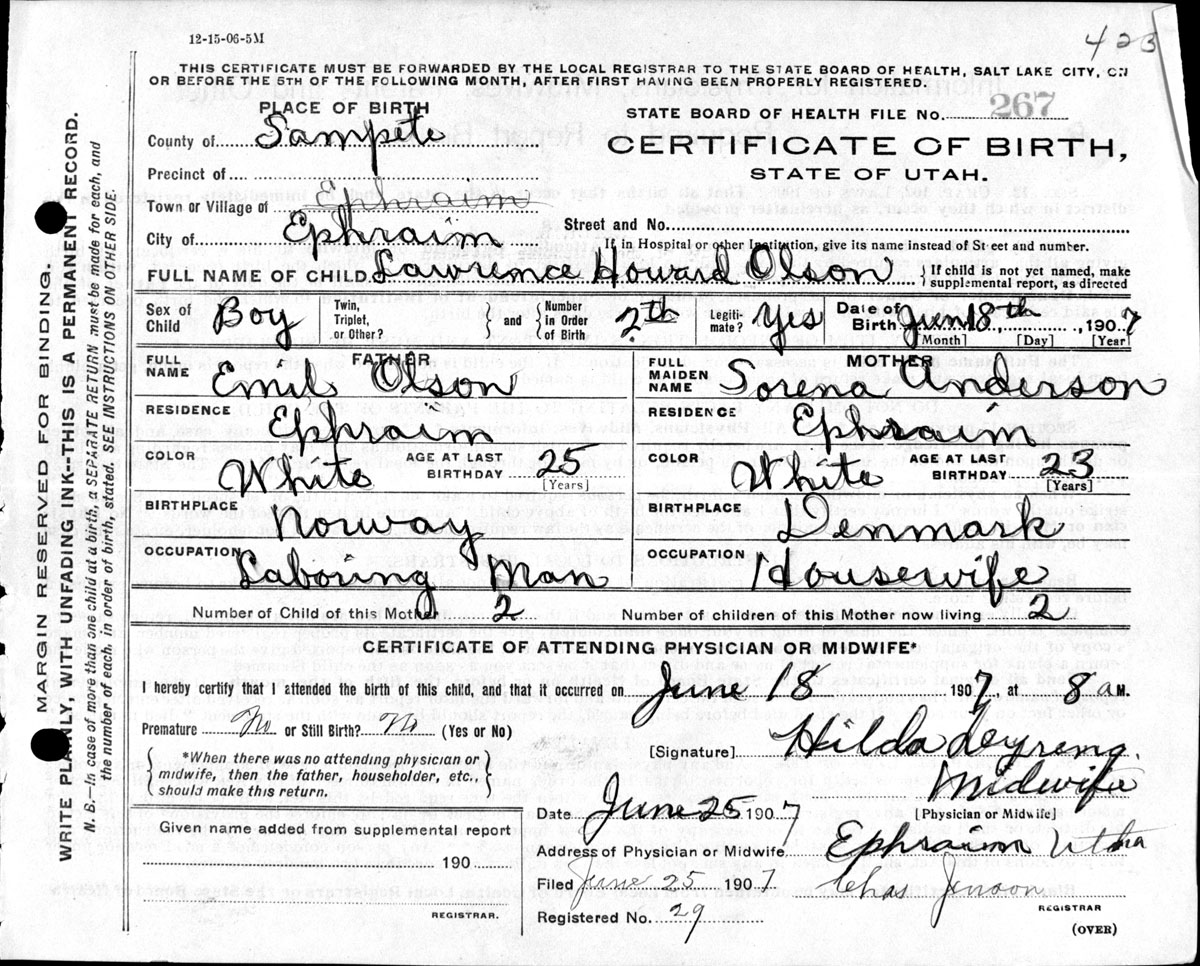 12-15-06-5M
423
THIS CERTIFICATE MUST BE FORWARDED BY THE LOCAL REGISTRAR TO THE STATE BOARD OF HEALTH, SALT LAKE CITY, ON
OR BEFORE THE 5TH OF THE FOLLOWING MONTH, AFTER FIRST HAVING BEEN PROPERLY REGISTERED.
PLACE OF BIRTH
County of Sampete
Precinct of
Town or Village of Ephraim
City of Ephraim
STATE BOARD OF HEALTH FILE No. 267
CERTIFICATE OF BIRTH,
STATE OF UTAH.
Street and No.
If in Hospital or other Institution, give its name instead of Street and number.
FULL NAME OF CHILD Lawrence Howard Olson { If child is not yet named, make
supplemental report, as directed
Sex of Child Boy Twin, Triplet, or Other? } and { Number in Order of Birth 2th Legiti-mate? Yes Date of Birth Jun 18th, 1907
[Month] [Day] [Year]
FATHER
FULL NAME Emil Olson
RESIDENCE Ephraim
COLOR White AGE AT LAST BIRTHDAY 25
[Years]
BIRTHPLACE Norway
OCCUPATION Laboring Man
MOTHER
FULL MAIDEN NAME Sorena Anderson
RESIDENCE Ephraim
COLOR White AGE AT LAST BIRTHDAY 23
[Years]
BIRTHPLACE Denmark
OCCUPATION Housewife
Number of Child of this Mother 2 Number of children of this Mother now living 2
CERTIFICATE OF ATTENDING PHYSICIAN OR MIDWIFE*
I hereby certify that I attended the birth of this child, and that it occurred on June 18 1907, at 8 a M.
Premature No or Still Birth? No (Yes or No)
{ *When there was no attending physician or
midwife, then the father, householder, etc.,
should make this return. }
Given name added from supplemental report
190
REGISTRAR.
[Signature] Hilda
Midwife
[Physician or Midwife]
Date June 25 1907
Address of Physician or Midwife Ephraim Utha
Filed June 25 1907 Chas
REGISTRAR
Registered No. 29
(OVER)
MARGIN RESERVED FOR BINDING.
WRITE PLAINLY, WITH UNFADING INK--THIS IS A PERMANENT RECORD.
N. B.—In case of more than one child at a birth, a SEPARATE RETURN must be made for each, and
the number of each, in order of birth, stated. SEE INSTRUCTIONS ON OTHER SIDE.